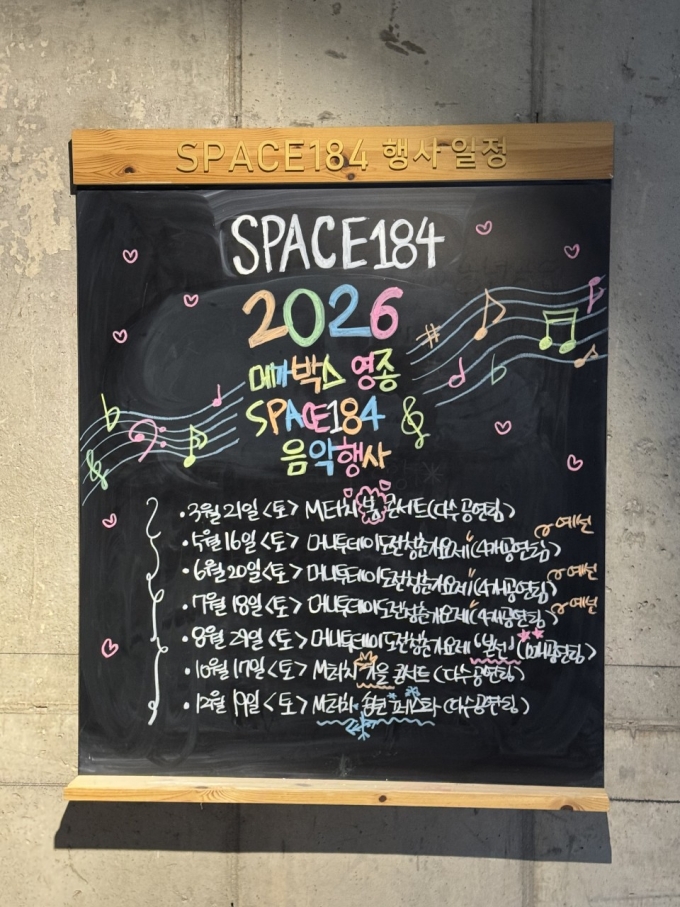 SPACE184 행사 일정
SPACE184
2026
메가박스 영종
SPACE184
음악행사
• 3월 21일 <토> M터치 봄 콘서트(다수공연팀)
• 5월 16일 <토> 머니투데이도전청춘가요제 (4개공연팀) 예선
• 6월 20일 <토> 머니투데이도전청춘가요제 (4개공연팀) 예선
• 7월 18일 <토> 머니투데이도전청춘가요제 (4개공연팀) 예선
• 8월 29일 <토> 머니투데이도전청춘가요제 "본선" (공연팀)
• 10월 17일 <토> M터치 가을 콘서트 (다수공연팀)
• 12월 19일 <토> M터치 (다수공연팀)